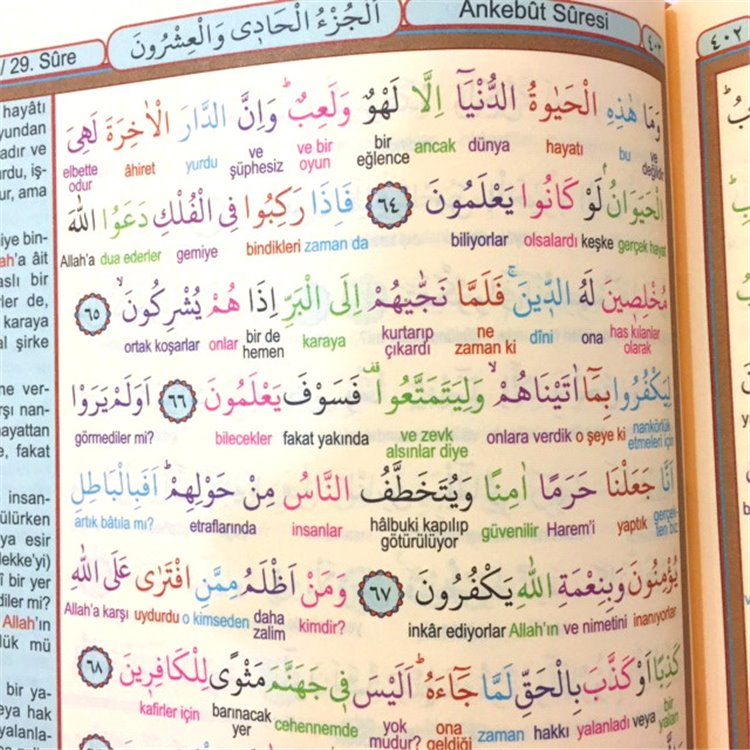 / 29. Sûre
اَلْجُزْءُ الْحَادِى وَالْعِشْرُونَ
Ankebût Sûresi
٤٠٣
٤٠٢
وَمَا هٰذِهِ الْحَيٰوةُ الدُّنْيَٓا اِلَّا لَهْوٌ وَلَعِبٌ وَاِنَّ الدَّارَ الْاٰخِرَةَ لَهِىَ
ve değildir bu hayatı dünya ancak bir eğlence ve bir oyun ve şüphesiz yurdu âhiret elbette odur
الْحَيَوَانُ لَوْ كَانُوا يَعْلَمُونَ ٦٤ فَاِذَا رَكِبُوا فِى الْفُلْكِ دَعَوُا اللّٰهَ
gerçek hayat keşke olsalardı biliyorlar zaman da bindikleri gemiye dua ederler Allah'a
مُخْلِصِينَ لَهُ الدِّينَ فَلَمَّا نَجّٰيهُمْ اِلَى الْبَرِّ اِذَا هُمْ يُشْرِكُونَ ٦٥
has kılanlar olarak ona dîni ne zaman ki kurtarıp çıkardı karaya bir de hemen onlar ortak koşarlar
لِيَكْفُرُوا بِمَٓا اٰتَيْنَاهُمْ وَلِيَتَمَتَّعُوا فَسَوْفَ يَعْلَمُونَ ٦٦ اَوَلَمْ يَرَوْا
nankörlük etmeleri için o şeye ki onlara verdik ve zevk alsınlar diye fakat yakında bilecekler görmediler mi?
اَنَّا جَعَلْنَا حَرَمًا اٰمِنًا وَيُتَخَطَّفُ النَّاسُ مِنْ حَوْلِهِمْ اَفَبِالْبَاطِلِ
gerçekten biz yaptık Harem'i güvenilir hâlbuki kapılıp götürülüyor insanlar etraflarında artık bâtıla mı?
يُؤْمِنُونَ وَبِنِعْمَةِ اللّٰهِ يَكْفُرُونَ ٦٧ وَمَنْ اَظْلَمُ مِمَّنِ افْتَرٰى عَلَى اللّٰهِ
inanıyorlar ve nimetini Allah'ın inkâr ediyorlar kimdir? daha zalim o kimseden uydurdu Allah'a karşı
كَذِبًا اَوْ كَذَّبَ بِالْحَقِّ لَمَّا جَٓاءَهُ اَلَيْسَ فِى جَهَنَّمَ مَثْوًى لِلْكَافِرِينَ ٦٨
bir yalan veya yalanladı hakkı zaman ona geldiği yok mudur? cehennemde barınacak yer kafirler için
hayatı
yundan
adır ve
urdu, iş-
ur, ama
iye bin-
ah'a âit
aslı bir
rler de,
karaya
al şirke
ne ver-
rşı nan-
hayattan
e, fakat
insan-
ülürken
ya esir
lekke'yi)
î bir yer
diler mi?
Allah'ın
lük mü
bir ya-
eya hak
yalanla-